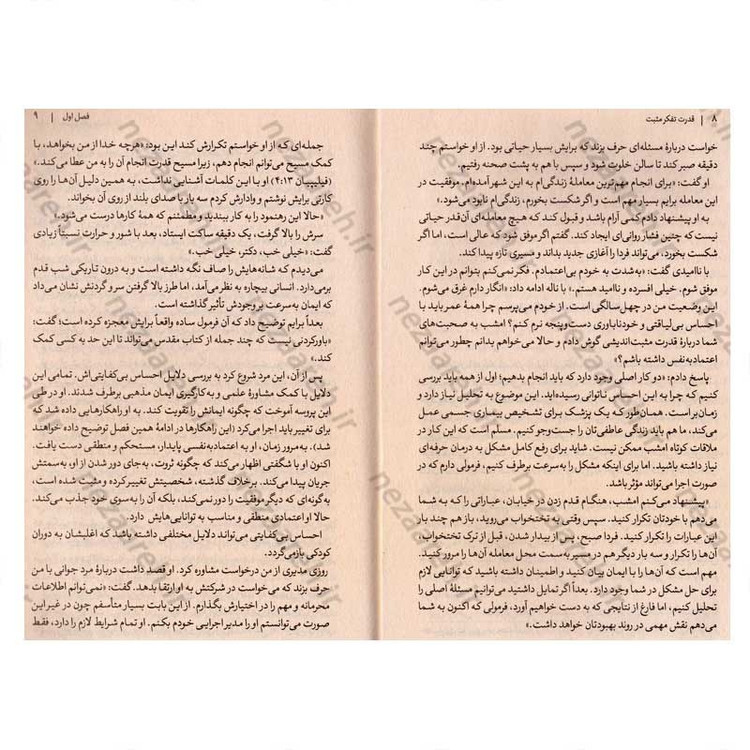 ۸ | قدرت تفکر مثبت
خواست دربارهٔ مسئله‌ای حرف بزند که برایش بسیار حیاتی بود. از او خواستم چند
دقیقه صبر کند تا سالن خلوت شود و سپس با هم به پشت صحنه رفتیم.
او گفت: «برای انجام مهم‌ترین معاملهٔ زندگی‌ام به این شهر آمده‌ام. موفقیت در
این معامله برایم بسیار مهم است و اگر شکست بخورم، زندگی‌ام نابود می‌شود.»
به او پیشنهاد دادم کمی آرام باشد و قبول کند که هیچ معامله‌ای آن‌قدر حیاتی
نیست که چنین فشار روانی‌ای ایجاد کند. گفتم اگر موفق شود که عالی است، اما اگر
شکست بخورد، می‌تواند فردا را آغازی جدید بداند و مسیری تازه پیدا کند.
با ناامیدی گفت: «به‌شدت به خودم بی‌اعتمادم. فکر نمی‌کنم بتوانم در این کار
موفق شوم. خیلی افسرده و ناامید هستم.» با ناله ادامه داد: «انگار دارم غرق می‌شوم.
این وضعیت من در چهل‌سالگی است. از خودم می‌پرسم چرا همهٔ عمر باید با
احساس بی‌لیاقتی و خودناباوری دست‌وپنجه نرم کنم؟ امشب به صحبت‌های
شما دربارهٔ قدرت مثبت‌اندیشی گوش دادم و حالا می‌خواهم بدانم چطور می‌توانم
اعتمادبه‌نفس داشته باشم؟»
پاسخ دادم: «دو کار اصلی وجود دارد که باید انجام بدهیم؛ اول از همه باید بررسی
کنیم که چرا به این احساس ناتوانی رسیده‌اید. این موضوع به تحلیل نیاز دارد و
زمان‌بر است. همان‌طور که یک پزشک برای تشخیص بیماری جسمی عمل
می‌کند، ما هم باید زندگی عاطفی‌تان را جست‌وجو کنیم. مسلم است که این کار در
ملاقات کوتاه امشب ممکن نیست. شاید برای رفع کامل مشکل به درمان حرفه‌ای
نیاز داشته باشید. اما برای اینکه مشکل را به‌سرعت برطرف کنیم، فرمولی دارم که در
صورت اجرا می‌تواند مؤثر باشد.
«پیشنهاد می‌کنم امشب، هنگام قدم زدن در خیابان، عباراتی را که به شما
می‌دهم با خودتان تکرار کنید. سپس وقتی به تختخواب می‌روید، باز هم چند بار
این عبارات را تکرار کنید. فردا صبح، پس از بیدار شدن، قبل از ترک تختخواب،
آن‌ها را تکرار و سه بار دیگر هم در مسیر به‌سمت محل معامله آن‌ها را مرور کنید.
مهم است که آن‌ها را با ایمان بیان کنید و اطمینان داشته باشید که توانایی لازم
برای حل مشکل در شما وجود دارد. بعداً اگر تمایل داشتید می‌توانیم مسئلهٔ اصلی را
تحلیل کنیم، اما فارغ از نتایجی که به دست خواهیم آورد، فرمولی که اکنون به شما
می‌دهم نقش مهمی در روند بهبودتان خواهد داشت.»
فصل اول | ۹
جمله‌ای که از او خواستم تکرارش کند این بود: «هرچه خدا از من بخواهد، با
کمک مسیح می‌توانم انجام دهم، زیرا مسیح قدرت انجام آن را به من عطا می‌کند.»
(فیلیپیان ۴:۱۳) او با این کلمات آشنایی نداشت، به همین دلیل آن‌ها را روی
کارتی برایش نوشتم و وادارش کردم سه بار با صدای بلند از روی آن بخواند.
«حالا این رهنمود را به کار ببندید و مطمئنم که همهٔ کارها درست می‌شود.»
سرش را بالا گرفت، یک دقیقه ساکت ایستاد، بعد با شور و حرارت نسبتاً زیادی
گفت: «خیلی خب، دکتر، خیلی خب.»
می‌دیدم که شانه‌هایش را صاف نگه داشته است و به درون تاریکی شب قدم
برمی‌دارد. انسانی بیچاره به نظر می‌آمد، اما طرز بالا گرفتن سر و گردنش نشان می‌داد
که ایمان به‌سرعت بر وجودش تأثیر گذاشته است.
بعداً برایم توضیح داد که آن فرمول ساده واقعاً برایش معجزه کرده است؛ گفت:
«باورکردنی نیست که چند جمله از کتاب مقدس می‌تواند تا این حد به کسی کمک
کند.»
پس از آن، این مرد شروع کرد به بررسی دلایل احساس بی‌کفایتی‌اش. تمامی این
دلایل با کمک مشاورهٔ علمی و به‌کارگیری ایمان مذهبی برطرف شدند. او در طی
این پروسه آموخت که چگونه ایمانش را تقویت کند. به او راهکارهایی داده شد که
برای تغییر باید اجرا می‌کرد (این راهکارها در ادامهٔ همین فصل توضیح داده خواهند
شد). به‌مرور زمان، او به اعتمادبه‌نفسی پایدار، مستحکم و منطقی دست یافت.
اکنون او با شگفتی اظهار می‌کند که چگونه ثروت، به‌جای دور شدن از او، به‌سمتش
جریان پیدا می‌کند. برخلاف گذشته، شخصیتش تغییر کرده و مثبت شده است،
به‌گونه‌ای که دیگر موفقیت را دور نمی‌کند، بلکه آن را به‌سوی خود جذب می‌کند.
حالا او اعتمادی منطقی و مناسب به توانایی‌هایش دارد.
احساس بی‌کفایتی می‌تواند دلایل مختلفی داشته باشد که اغلبشان به دوران
کودکی بازمی‌گردد.
روزی مدیری از من درخواست مشاوره کرد. او قصد داشت دربارهٔ مرد جوانی با من
حرف بزند که می‌خواست در شرکتش به او ارتقا بدهد. گفت: «نمی‌توانم اطلاعات
محرمانه و مهم را در اختیارش بگذارم. از این بابت بسیار متأسفم چون در غیر این
صورت می‌توانستم او را مدیر اجرایی خودم بکنم. او تمام شرایط لازم را دارد، فقط
nezareh.ir